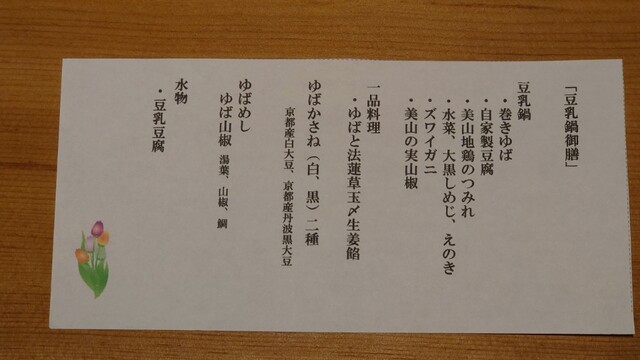 「豆乳鍋御膳」
豆乳鍋
・巻きゆば
・自家製豆腐
・美山地鶏のつみれ
・水菜、大黒しめじ、えのき
・ズワイガニ
・美山の実山椒
一品料理
・ゆばと法蓮草玉〆生姜餡
ゆばかさね（白、黒）二種
京都産白大豆、京都産丹波黒大豆
ゆばめし
ゆば山椒 湯葉、山椒、鯛
水物
・豆乳豆腐